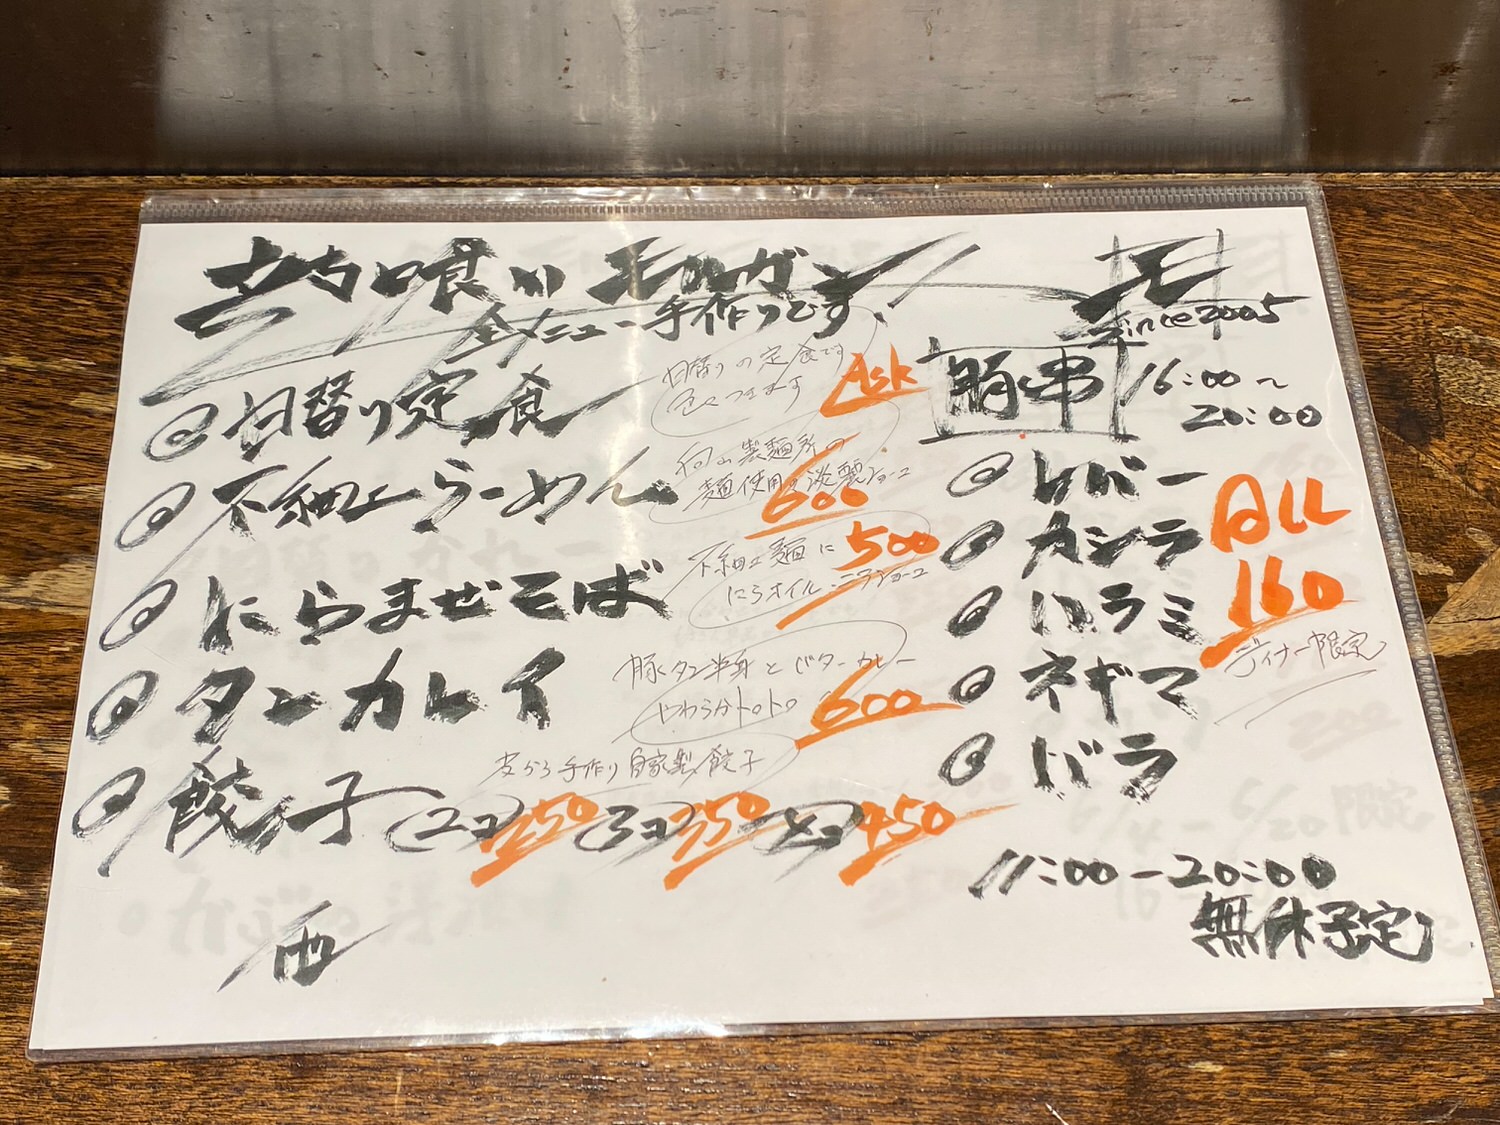 立ち喰い
モ
全メニュー手作りです.
since2005
日替り定食
日替りの定食です
Ask
らーめん
製麺所の
麺使用の淡麗ショーユ
600
にらまぜそば
麺に
にらオイル
500
タンカレイ
豚タン半身とバターカレー
やわらかトロトロ
600
皮から手作り自家製餃子
餃子(2コ)250(3コ)350 450
豚串 16:00〜
20:00
レバー
カシラ
ハラミ
ネギマ
バラ
ALL
160
ディナー限定
11:00-20:00
無休予定